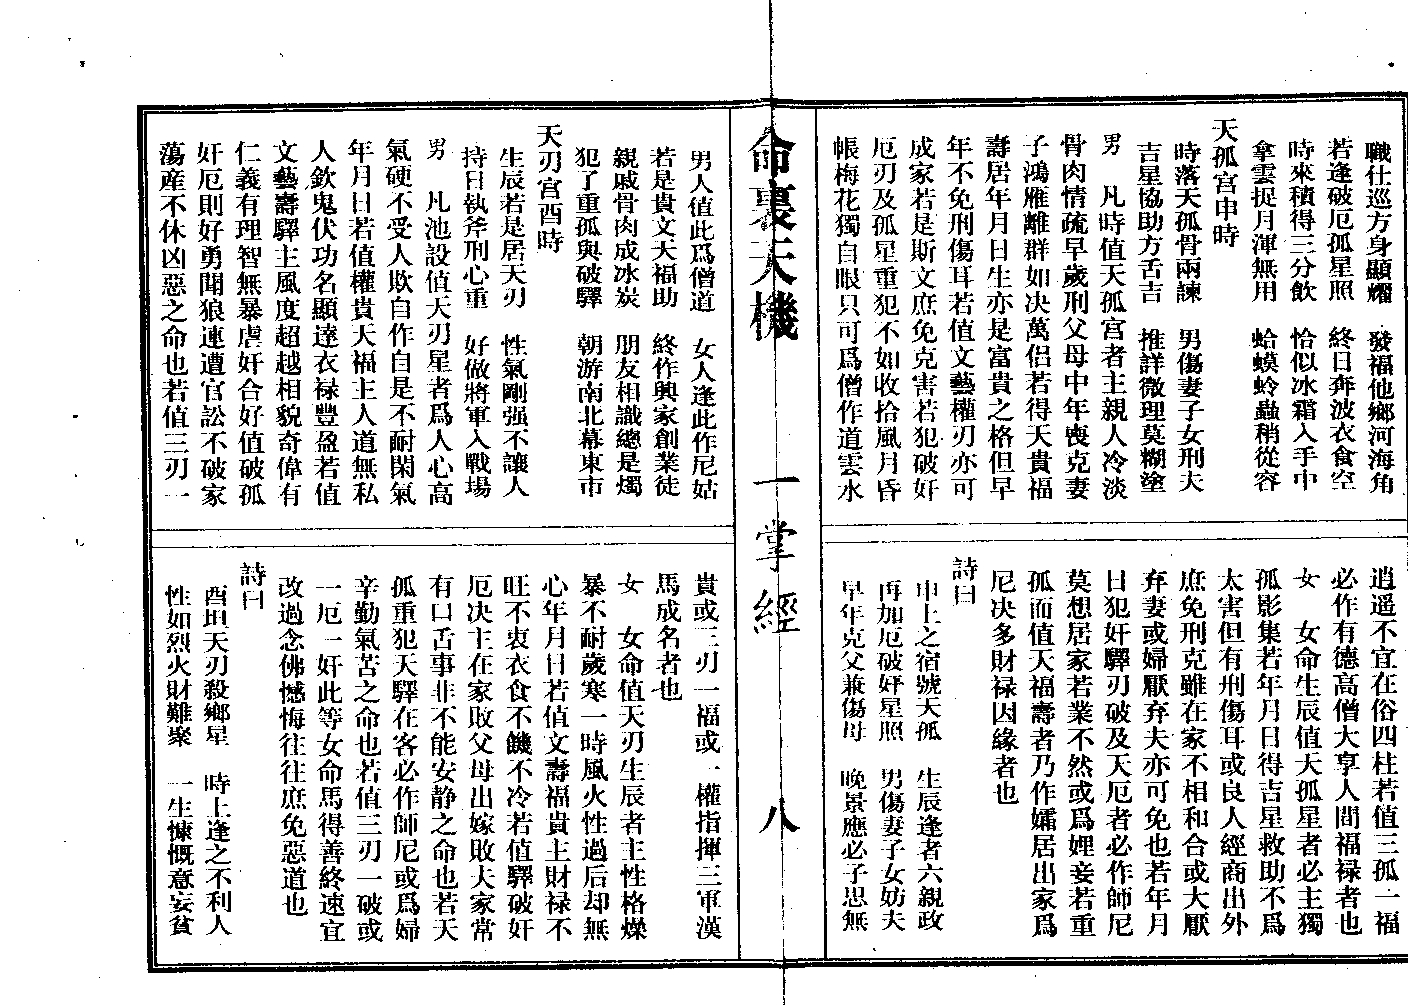 職仕巡方身顯耀　發福他鄉河海角
若逢破厄孤星照　終日奔波衣食空
時來積得三分飲　恰似冰霜入手中
拿雲捉月渾無用　蛤蟆蛉蟲稍從容
天孤宮申時
時落天孤骨兩諫　男傷妻子女刑夫
吉星協助方舌吉　推詳微理莫糊塗
男　凡時值天孤宮者主親人冷淡
骨肉情疏早歲刑父母中年喪克妻
子鴻雁離群如決萬侶若得天貴福
壽居年月日生亦是富貴之格但早
年不免刑傷耳若值文藝權刃亦可
成家若是斯文庶免克害若犯破奸
厄刃及孤星重犯不如收拾風月昏
帳梅花獨自眼只可爲僧作道雲水
逍遥不宜在俗四柱若值三孤一福
必作有德高僧大享人間福禄者也
女　女命生辰值天孤星者必主獨
孤影集若年月日得吉星救助不爲
太害但有刑傷耳或良人經商出外
庶免刑克雖在家不相和合或大厭
弃妻或婦厭弃夫亦可免也若年月
日犯奸驛刃破及天厄者必作師尼
莫想居家若業不然或爲娌妾若重
孤而值天福壽者乃作孀居出家爲
尼決多財禄因緣者也
詩曰
申上之宿號天孤　生辰逢者六親政
再加厄破奸星照　男傷妻子女妨夫
早年克父兼傷母　晚景應必子思無
命裏天機
一掌經
八
男人值此爲僧道　女人逢此作尼姑
若是貴文天福助　終作興家創業徒
親戚骨肉成冰炭　朋友相識總是燭
犯了重孤與破驛　朝游南北幕東市
天刃宮酉時
生辰若是居天刃　性氣剛强不讓人
持日執斧刑心重　好做將軍入戰場
男　凡池設值天刃星者爲人心高
氣硬不受人欺自作自是不耐閑氣
年月日若值權貴天福主人道無私
人欽鬼伏功名顯達衣禄豐盈若值
文藝壽驛主風度超越相貌奇偉有
仁義有理智無暴虐奸合好值破孤
奸厄則好勇鬬狼連遭官訟不破家
蕩産不休凶惡之命也若值三刃一
貴或三刃一福或一權指揮三軍漢
馬成名者也
女　女命值天刃生辰者主性格燥
暴不耐歲寒一時風火性過后却無
心年月日若值文壽福貴主財禄不
旺不衷衣食不饑不冷若值驛破奸
厄決主在家敗父母出嫁敗夫家常
有口舌事非不能安静之命也若天
孤重犯天驛在客必作師尼或爲婦
辛勤氣苦之命也若值三刃一破或
一厄一奸此等女命馬得善終速宜
改過念佛憾悔往往庶免惡道也
詩曰
酉垣天刃殺鄉星　時上逢之不利人
性如烈火財難聚　一生慷慨意妄貧